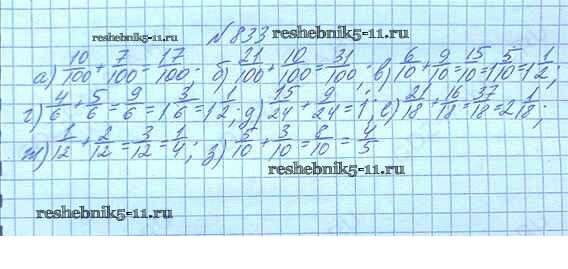 reshebnik5-11.ru
№833
reshebnik5-11.ru
а) 10/100 + 7/100 = 17/100; б) 21/100 + 10/100 = 31/100; в) 6/10 + 9/10 = 15/10 = 1 5/10 = 1 1/2;
г) 4/6 + 5/6 = 9/6 = 1 3/6 = 1 1/2; д) 15/24 + 9/24 = 1; е) 21/18 + 16/18 = 37/18 = 2 1/18;
ж) 1/12 + 2/12 = 3/12 = 1/4; з) 5/10 + 3/10 = 8/10 = 4/5
reshebnik5-11.ru
reshebnik5-11.ru